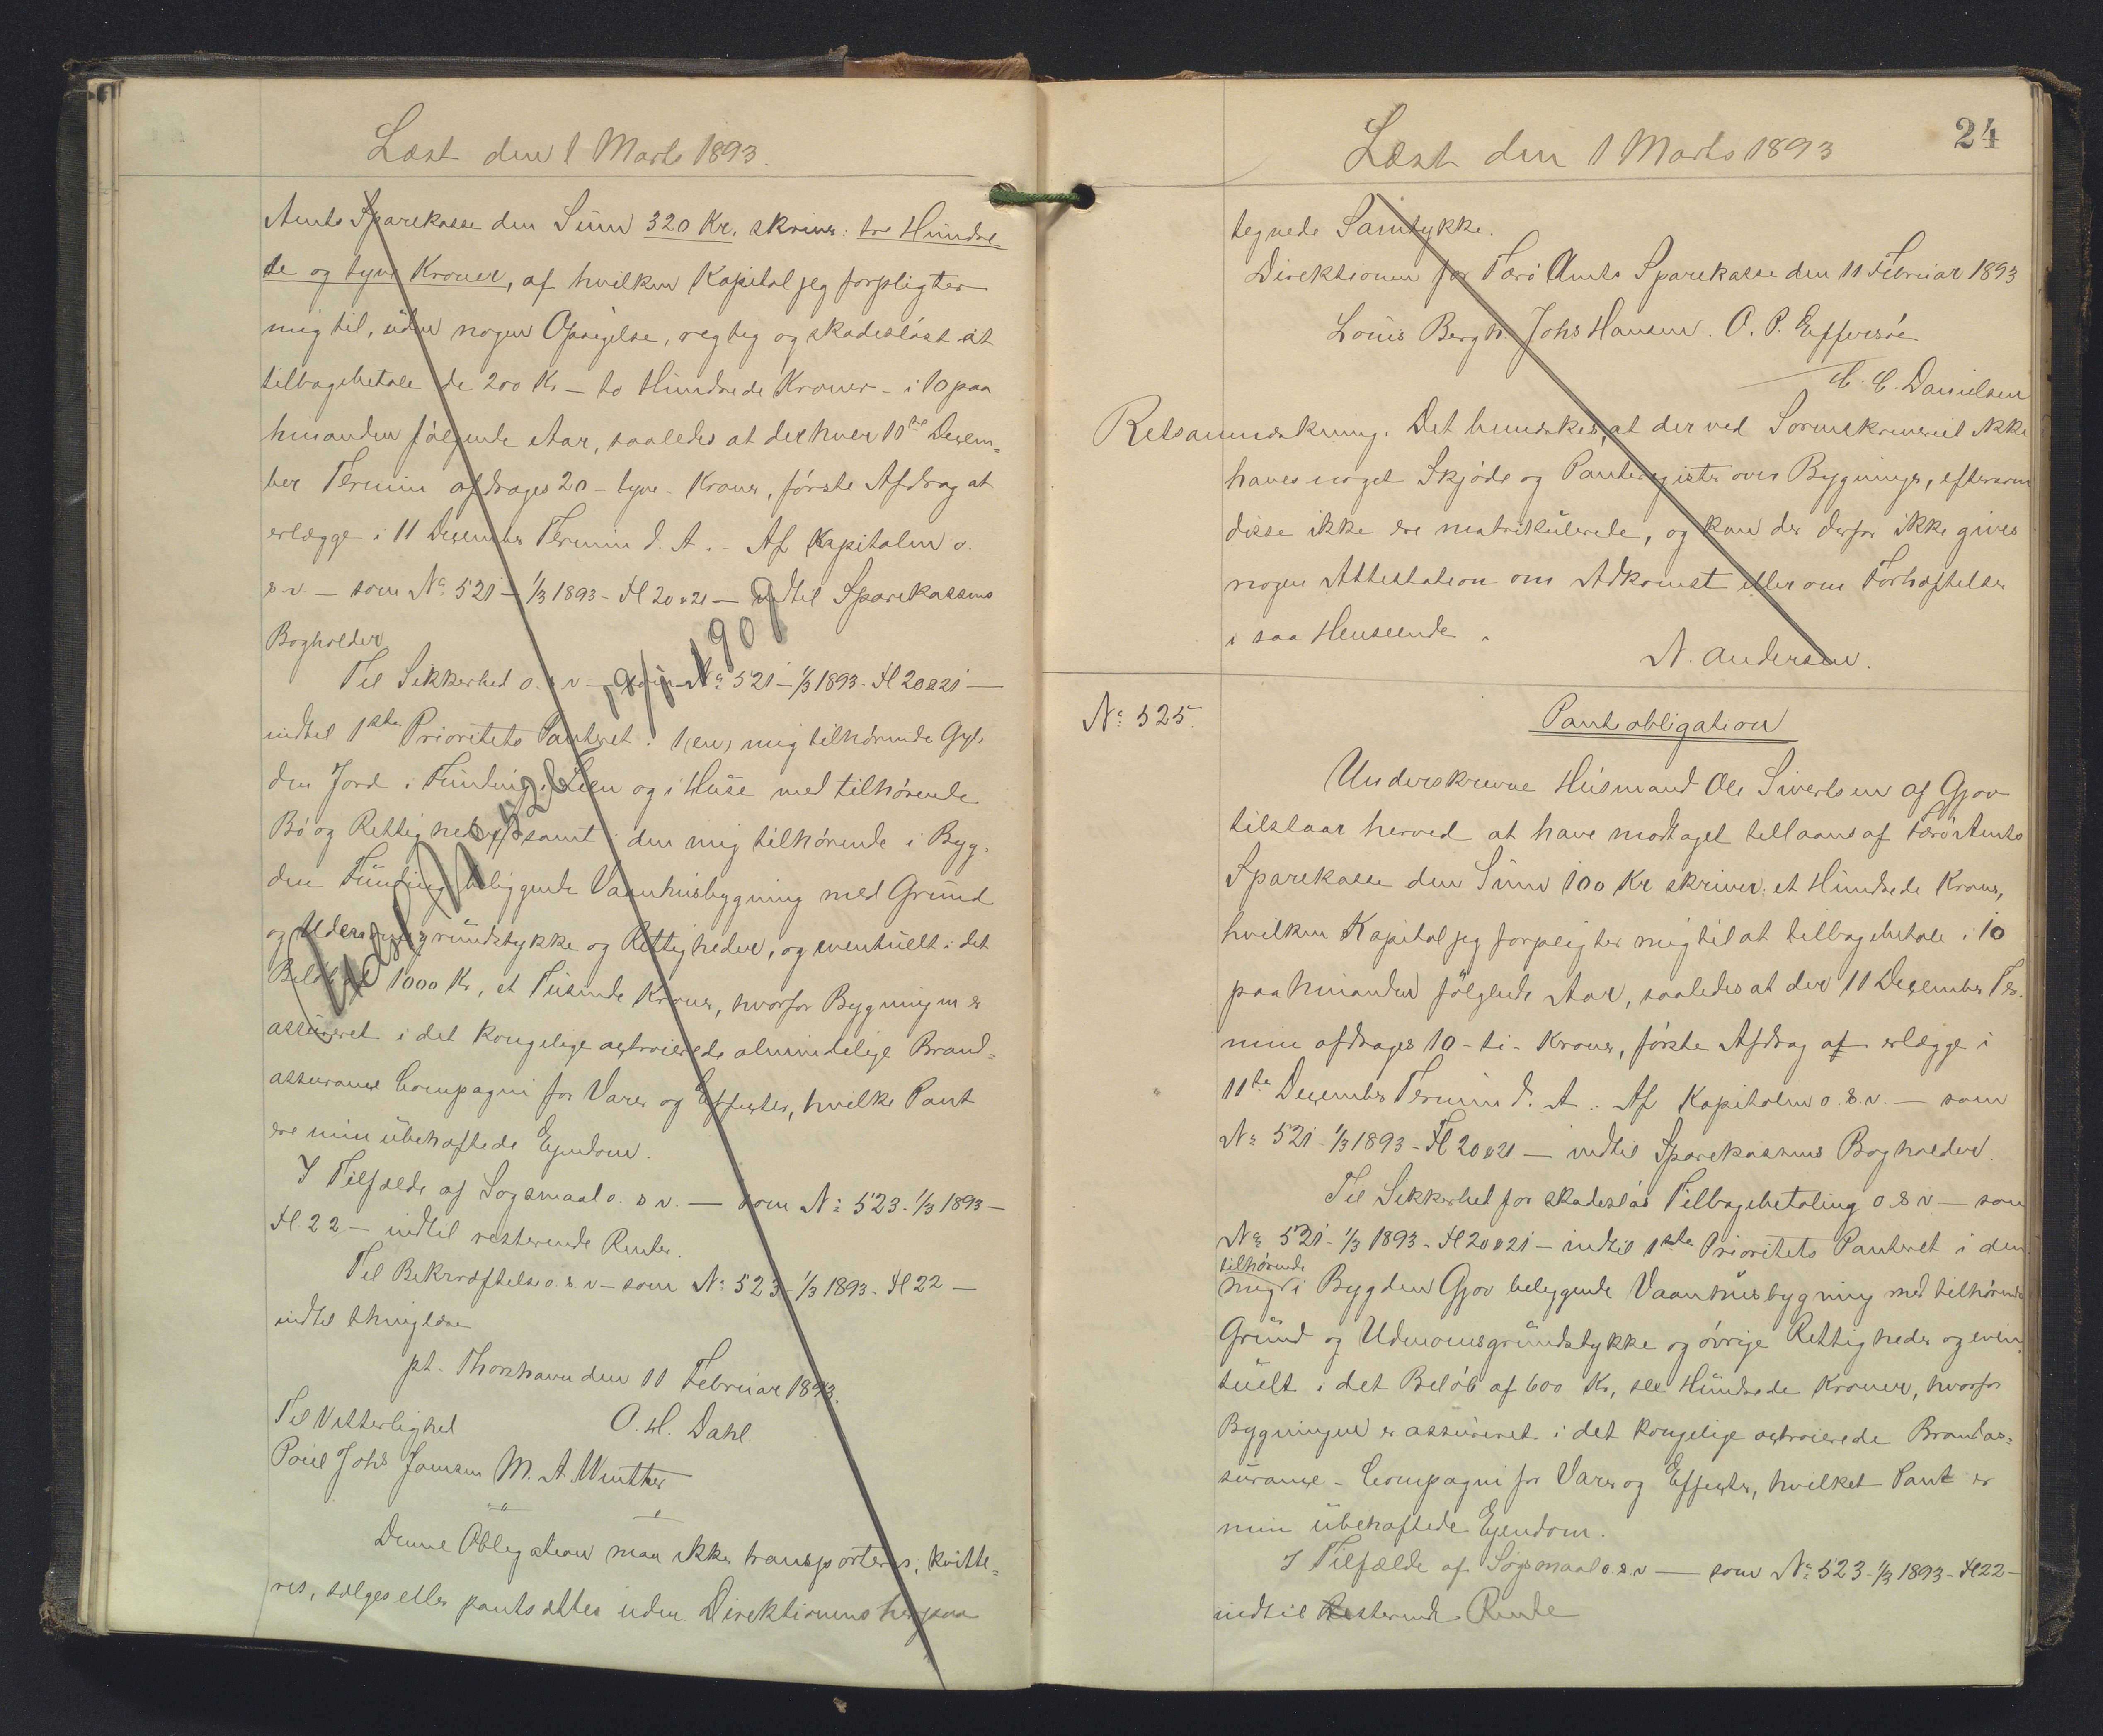 Læst den 1 Marts 1893.
Amts Sparekasse den Sum 320 Kr. skriver: tre Hundre
de og tyve Kroner, af hvilken Kapital jeg forpligter
mig til, uden nogen Opsigelse, rigtig og skadesløst at
tilbagebetale de 200 Kr – to Hundrede Kroner – i 10 paa
hinanden følgende Aar, saaledes at der hver 11te Decem=
ber Termin afdrages 20 – tyve – Kroner, første Afdrag at
erlægge i 11 December Termin d. A. – Af Kapitalen o.
s. v. – som No 521 – 1/3 1893 – Fl 20 & 21 – indtil Sparekassens
Bogholder
Til Sikkerhed o. s. v – som No 521 – 1/3 1893 – Fl 20 & 21 –
indtil 1ste Prioritets Panteret i 1 (en) mig tilhørende Gyl.
den Jord i Funding, Leen og i Huse med tilhørende
Bø og Rettigheder, samt i den mig tilhørende i Byg.
den Funding beliggende Vaanhusbygning med Grund
og Udersgrundstykke og Rettigheder, og eventuelt i det
Beløb af 1000 Kr, et Tusinde Kroner, hvorfor Bygningen er
assureret i det kongelige octroierede almindelige Brand=
assurance Compagni for Varer og Effecter, hvilke Pant
ere min ubehæftede Ejendom.
I Tilfælde af Søgsmaal o. s v. – som No 523 – 1/3 1893 –
Fl 22 – indtil resterende Renter.
Til Bekræftelse o. s. v – som No 523 – 1/3 1893 – Fl 22 –
indtil thinglæse
pt. Thorshavn den 11 Februar 1893.
Til Vitterlighed O. H. Dahl.
Poul Johs Jansen M. A. Winther
Denne Obligation maa ikke transporteres, kvitte=
res, sælges eller pantsættes uden Direktionens herpaa
Udsl
Læst den 1 Marts 1893
24
tegnede Samtykke.
Direktionen for Færø Amts Sparekasse den 11 Februar 1893
Louis Bergh. Johs Hansen. O. P. Effersøe
C. C. Danielsen
Retsanmærkning. Det bemærkes, at der ved Sorenskriveriet ikke
haves noget Skjøde og Panteregister over Bygninger, eftersom
disse ikke ere matrikulerede, og kan der derfor ikke gives
nogen Attestation om Adkomst eller om Forhæftelser
i saa Henseende.
N. Andersen.
No 525.
Panteobligation
Underskrevne Husmand Ole Sivertsen af Gjov
tilstaar herved at have modtaget tillaans af Færø Amts
Sparekasse den Sum 100 Kr skriver: et Hundrede Kroner,
hvilken Kapital jeg forpligter mig til at tilbagebetale i 10
paa hinanden følgende Aar, saaledes at der 11 December Ter.
min afdrages 10 – ti – Kroner, første Afdrag at erlægge i
11te December Termin d. A. Af Kapitalen o. s. v. – som
No 521 – 1/3 1893 – Fl 20 & 21 – indtil Sparekassens Bogholder.
Til Sikkerhed for skadesløs Tilbagebetaling o. s v – som
No 521 – 1/3 1893 – Fl 20 & 21 – indtil 1ste Prioritets Panteret i den
tilhørende
mig i Bygden Gjov beliggende Vaanhusbygning med tilhørende
Grund og Udmomsgrundstykke og øvrige Rettigheder og even
tuelt i det Beløb af 600 Kr, sex Hundrede Kroner, hvorfor
Bygningen er assureret i det kongelige octroierede Brandas=
surance – Compagni for Varer og Effecter, hvilket Pant er
min ubehæftede Ejendom.
I Tilfælde af Søgsmaal o. s. v – som No 523 – 1/3 1893 – Fl 22 –
indtil Resterende Rente